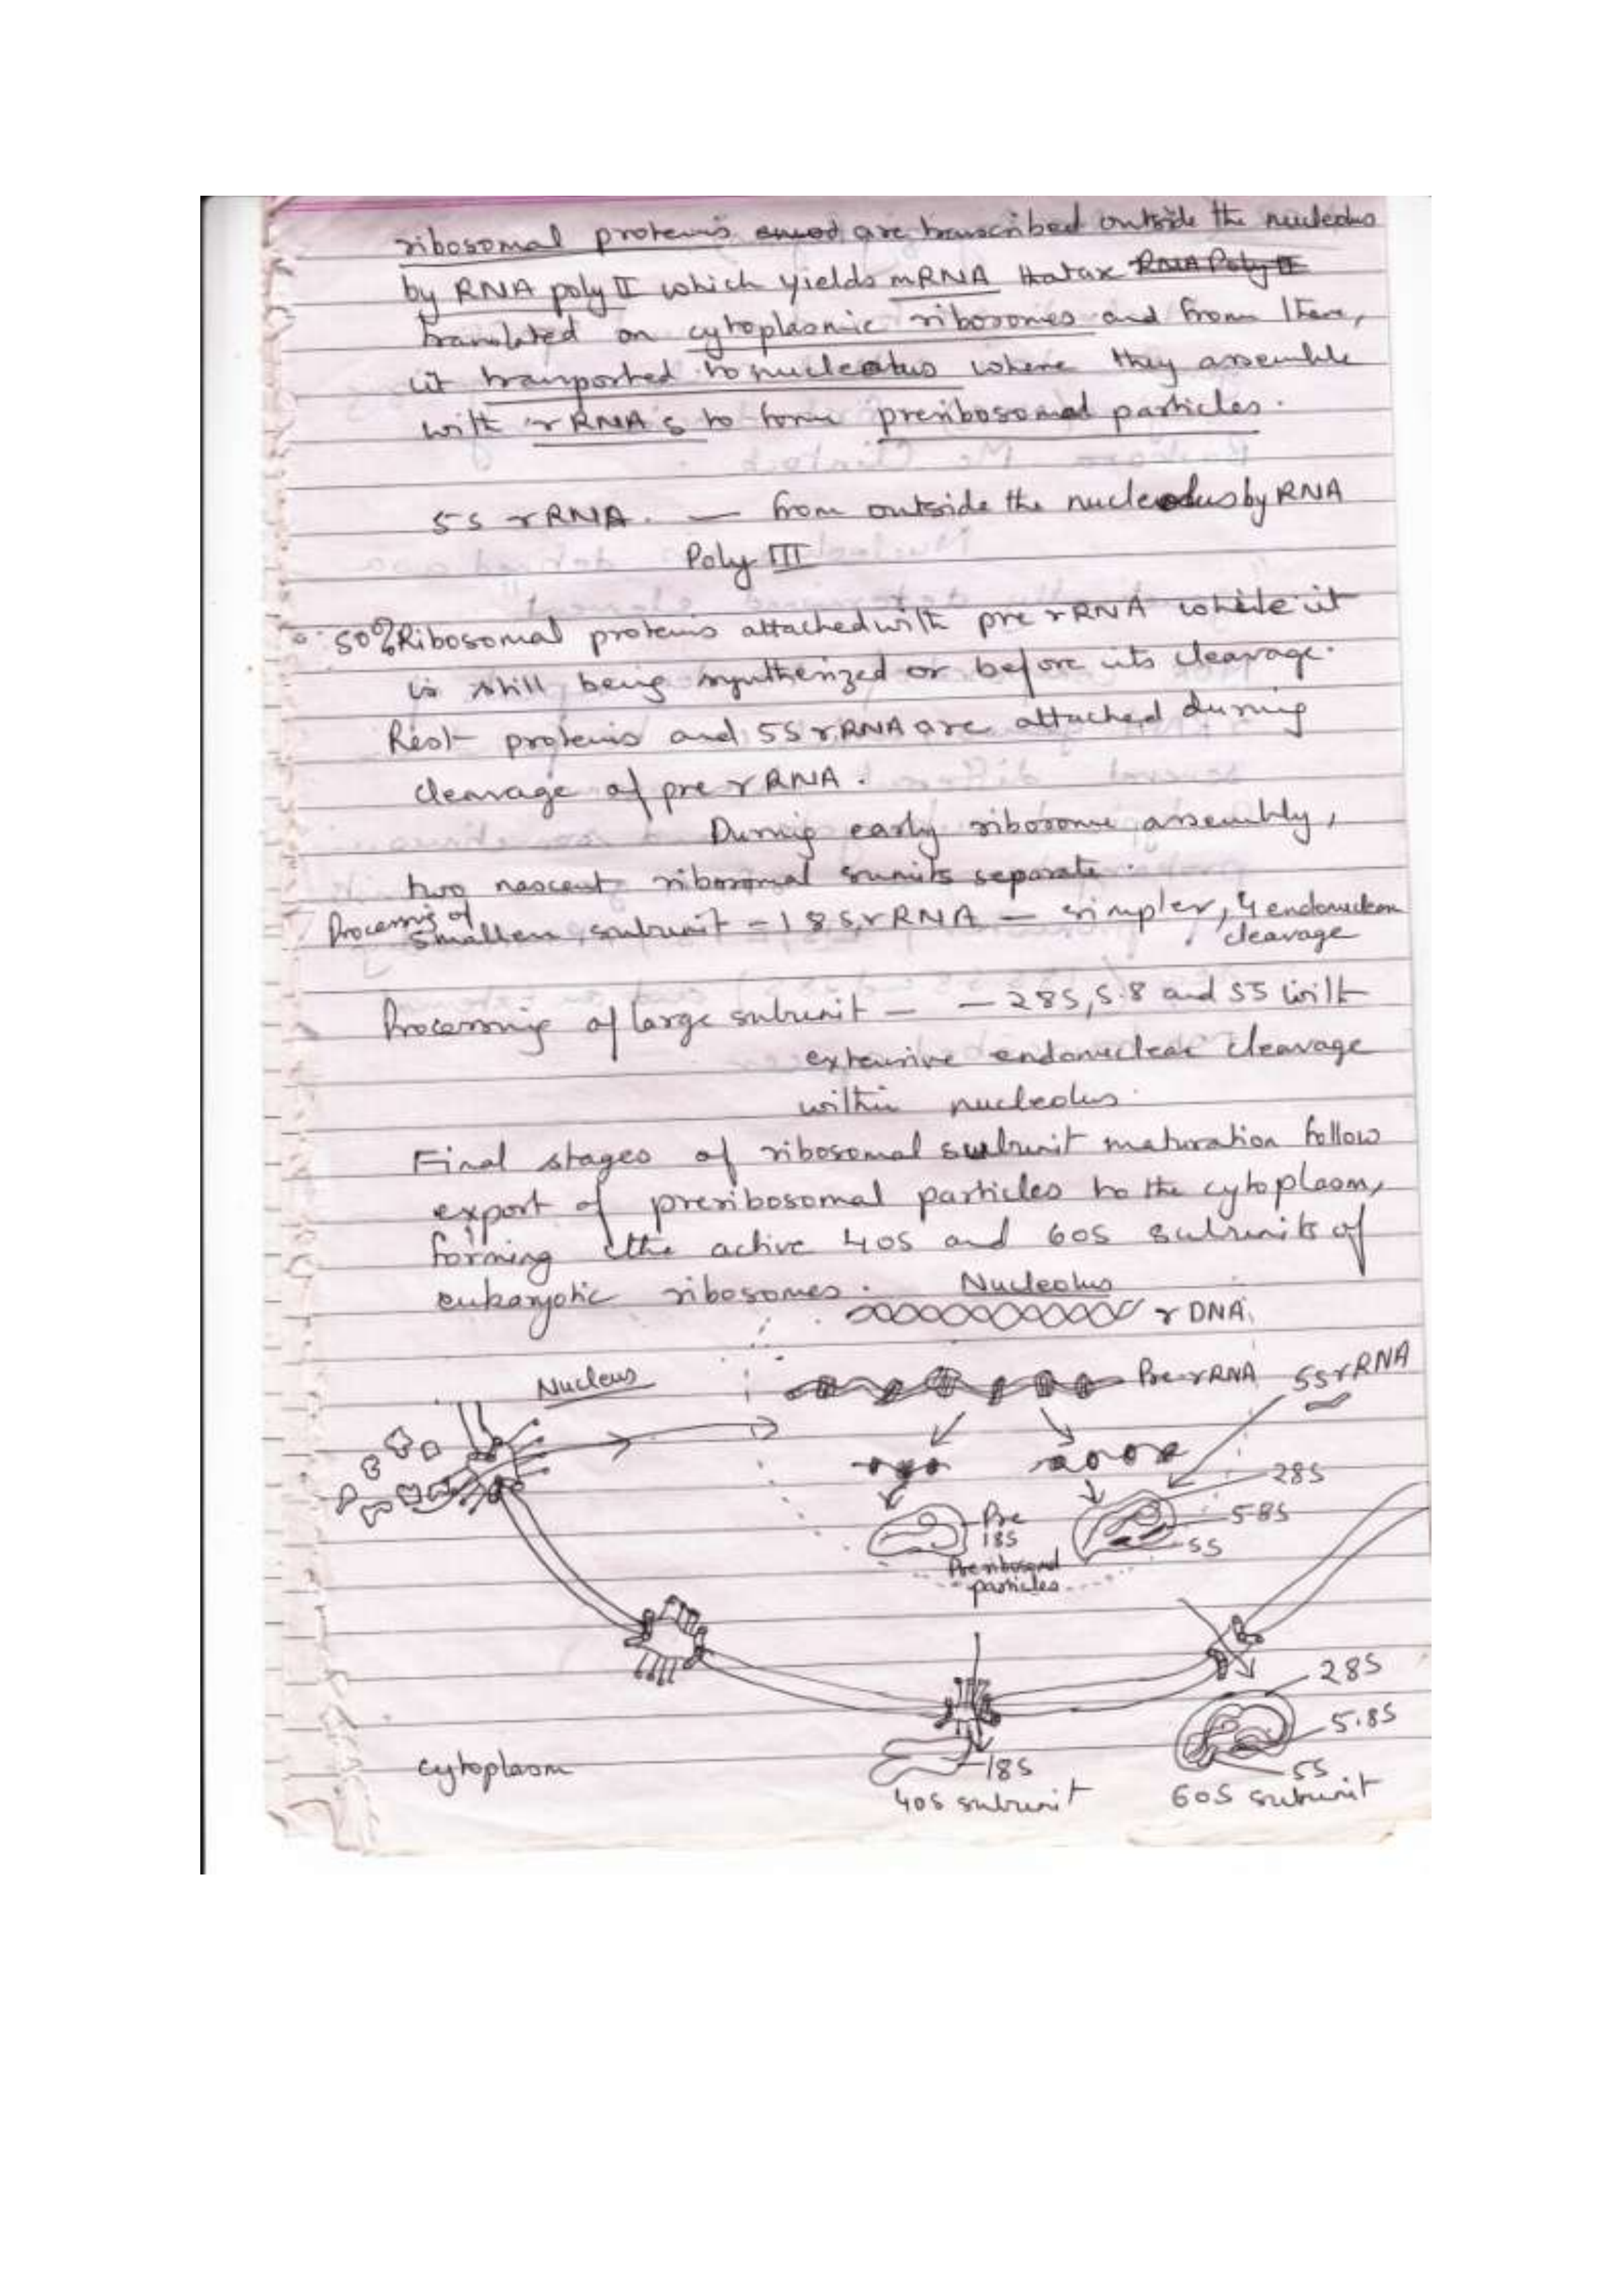 ribosomal proteins are transcribed outside the nucleolus
by RNA poly II which yields mRNA that are RNA Poly II
translated on cytoplasmic ribosomes and from there,
it transported to nucleolus where they assemble
with rRNA s to form preribosomal particles.
5S rRNA. — from outside the nucleolus by RNA
Poly III
50% Ribosomal proteins attached with pre rRNA while it
is still being synthesized or before its cleavage.
Rest proteins and 5S rRNA are attached during
cleavage of pre rRNA.
During early ribosome assembly,
two nascent ribosomal sunits separate.
Processing of
smaller subunit - 18S rRNA — simpler, 4 endonuclear
cleavage
Processing of large subunit — — 28S, 5.8 and 5S with
extensive endonuclear cleavage
within nucleolus.
Final stages of ribosomal subunit maturation follow
export of preribosomal particles to the cytoplasm,
forming the active 40S and 60S subunits of
eukaryotic ribosomes.
Nucleolus
rDNA
Nucleus
Pre-rRNA
5S rRNA
28S
Pre
18S
5.8S
5S
Preribosomal
particles
28S
5.8S
cytoplasm
18S
5S
40S subunit
60S subunit